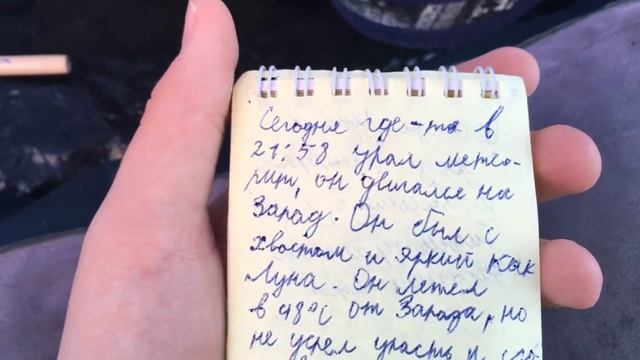 Сегодня где-то в
21:58 упал метео-
рит, он двигался на
Запад. Он был с
хвостом и яркий как
Луна. Он летел
в 48°С от Запада, но
не успел упасть и